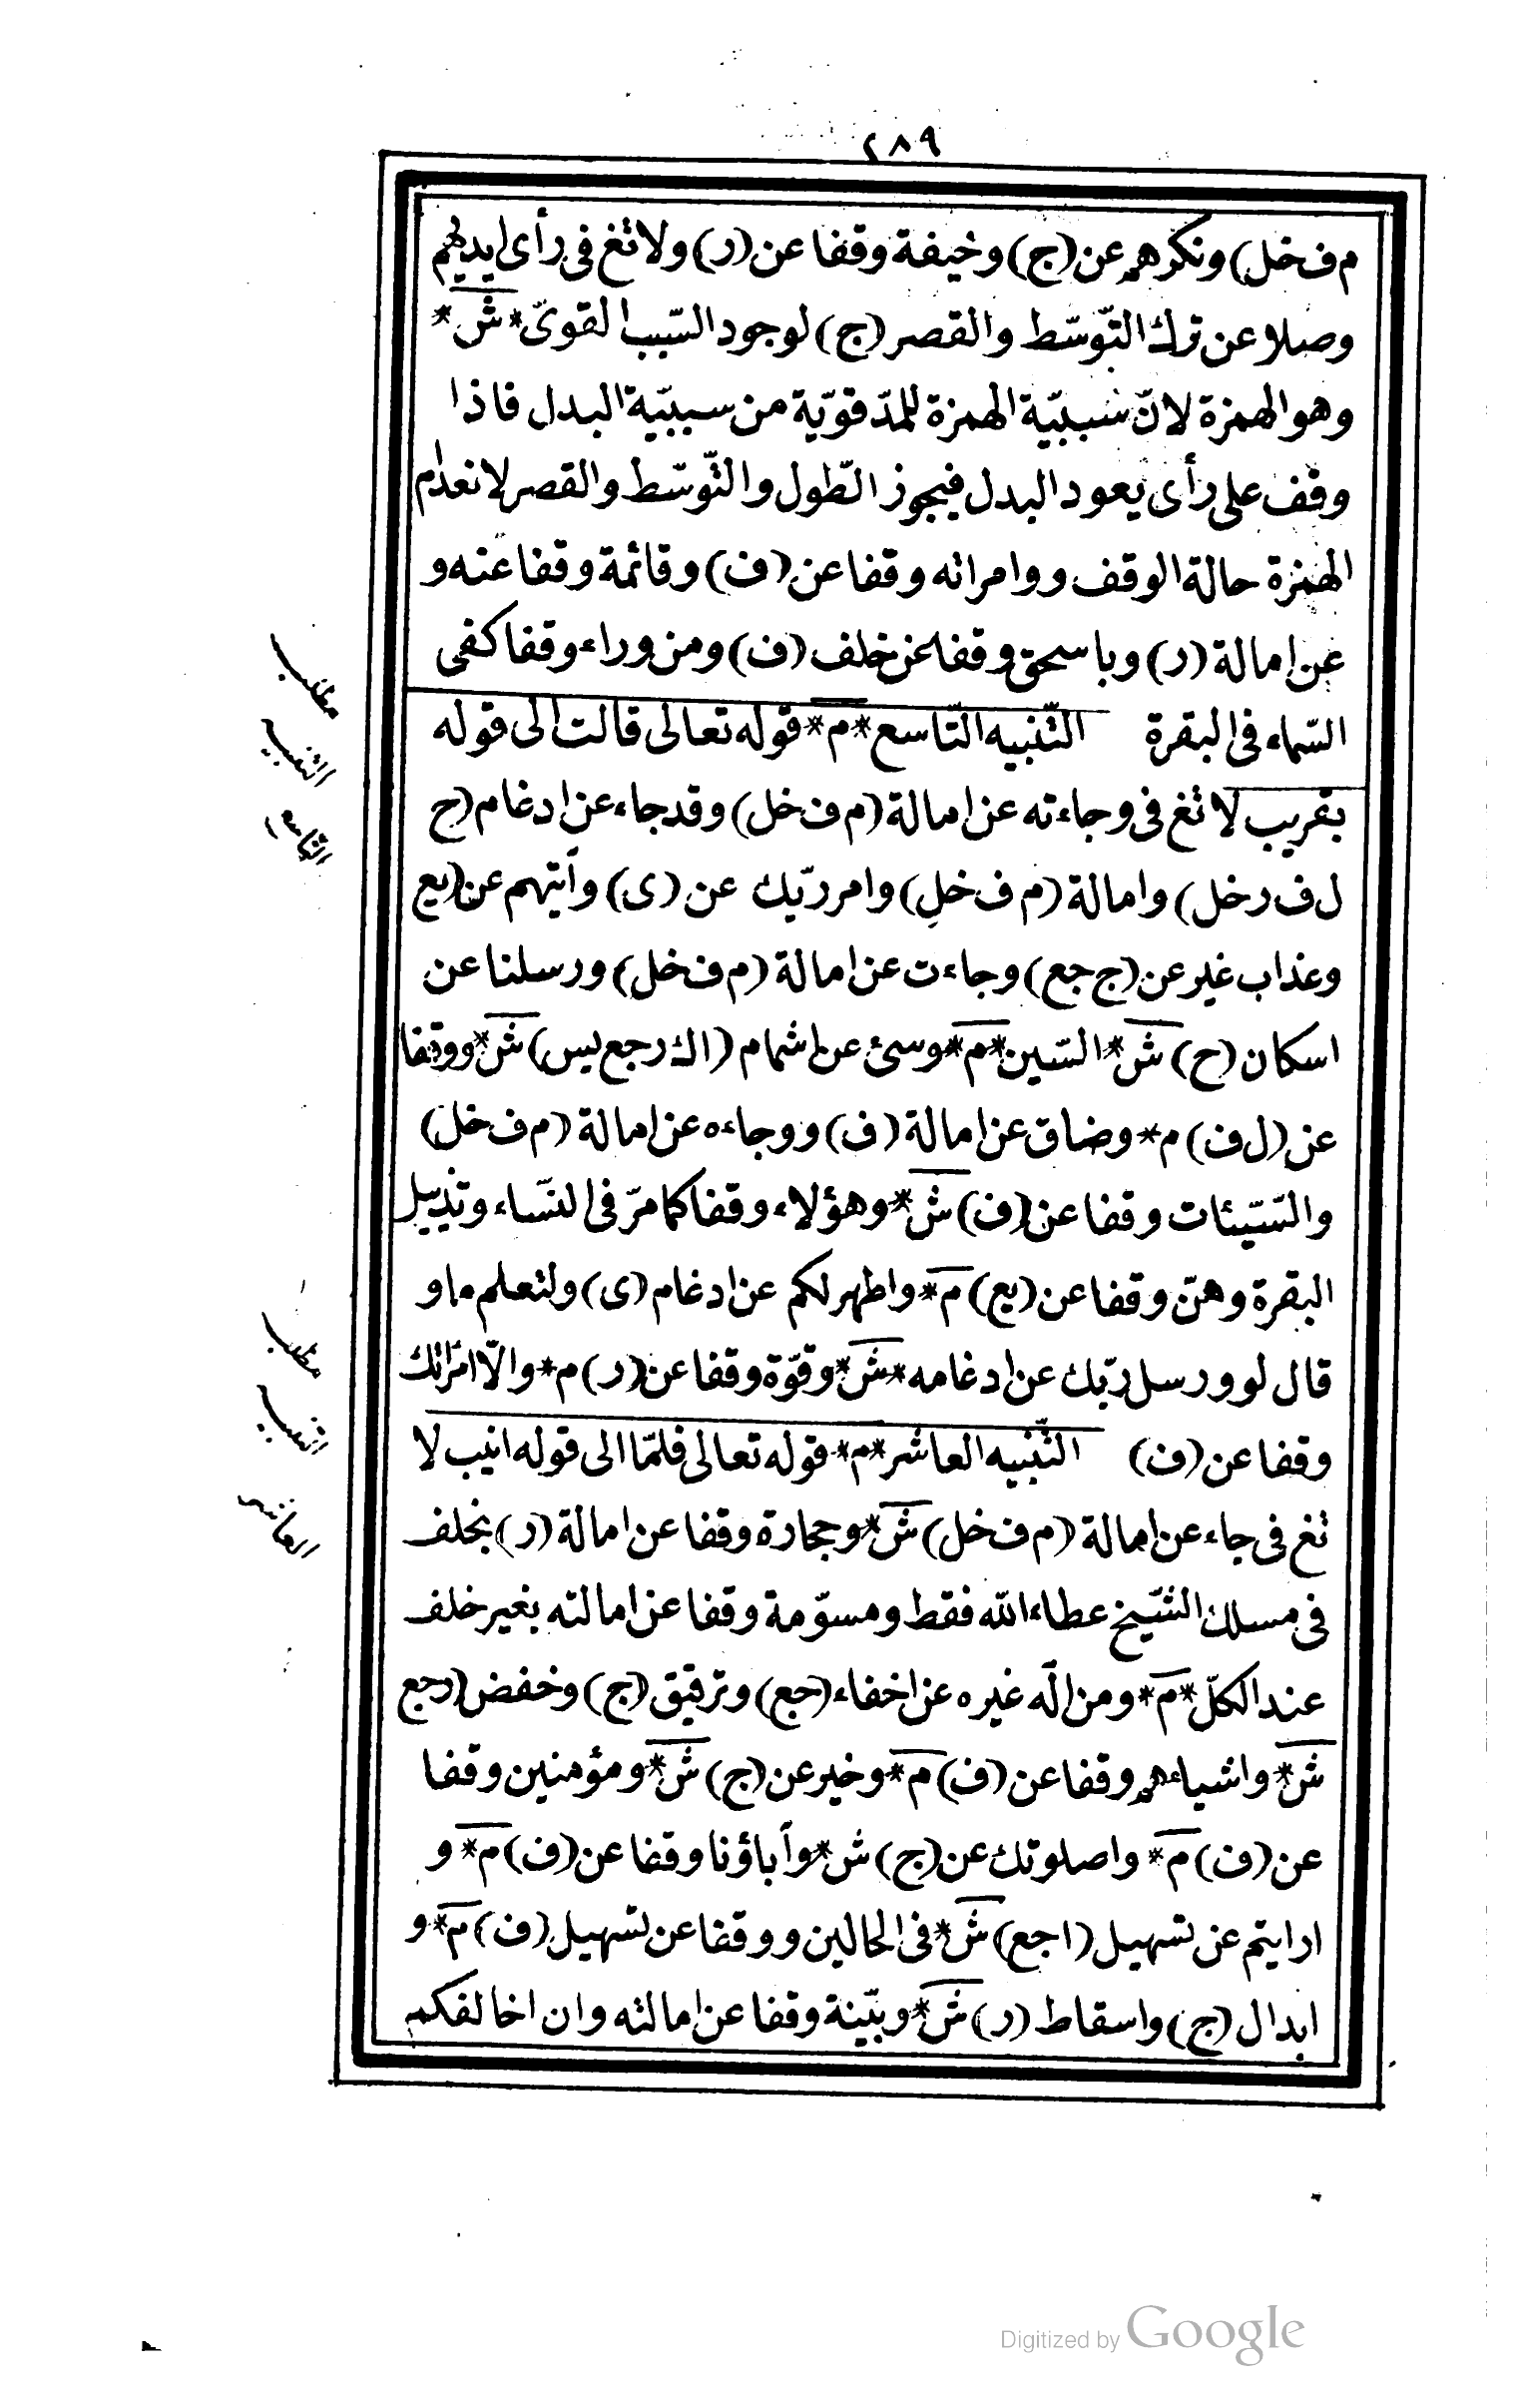 ٢٨٩
م ف خل) ونكرهم عن (ج) وخيفة وقفا عن (ر) ولا تغ فى رأى ايديهم
وصلا عن ترك التّوسّط والقصر (ج) لوجود السّبب القوىّ * ش *
وهو الهمزة لانّ سببيّة الهمزة للمدّ قويّة من سببيّة البدل فاذا
وقف على رأى يعود البدل فيجوز الطّول والتّوسّط والقصر لانعدام
الهمزة حالة الوقف ووامراته وقفا عن (ف) وقائمة وقفا عنه و
عن امالة (ر) وباسحق وقفا عن خلف (ف) ومن وراء وقفا كفى
السّماء فى البقرة التّنبيه التّاسع * م * قوله تعالى قالت الى قوله
بقريب لا تغ فى وجاءته عن امالة (م ف خل) وقد جاء عن ادغام (ح
ل ف ر خل) وامالة (م ف خل) وامر ربّك عن (ى) وآتيهم عن (يع
وعذاب غير عن (ج جع) وجاءت عن امالة (م ف خل) ورسلنا عن
اسكان (ح) ش * السّين * م * وسئ عن اشمام (اك ر جع يس) ش * ووقفا
عن (ل ف) م * وضاق عن امالة (ف) ووجاءه عن امالة (م ف خل)
والسّيّئات وقفا عن (ف) ش * وهؤلاء وقفا كما مرّ فى النسّاء وتذييل
البقرة وهنّ وقفا عن (يع) م * واطهر لكم عن ادغام (ى) ولتعلم ما و
قال لو ورسل ربّك عن ادغامه * ش * وقوّة وقفا عن (ر) م * والّا امراتك
وقفا عن (ف) التّنبيه العاشر * م * قوله تعالى فلمّا الى قوله انيب لا
تغ فى جاء عن امالة (م ف خل) ش * وحجارة وقفا عن امالة (ر) بخلف
فى مسلك الشّيخ عطاء الله فقط ومسوّمة وقفا عن امالته بغير خلف
عند الكلّ * م * ومن اله غيره عن اخفاء (جع) وترقيق (ج) وخفض (ر جع
ش * واشياءهم وقفا عن (ف) م * وخير عن (ج) ش * ومؤمنين وقفا
عن (ف) م * واصلوتك عن (ج) ش * وآباؤنا وقفا عن (ف) م * و
ارايتم عن تسهيل (ا جع) ش * فى الحالين ووقفا عن تسهيل (ف) م * و
ابدال (ج) واسقاط (ر) ش * وبيّنة وقفا عن امالته وان اخالفكم
مطلب
التنبيه
التاسع
مطلب
التنبيه
العاشر
Digitized by Google